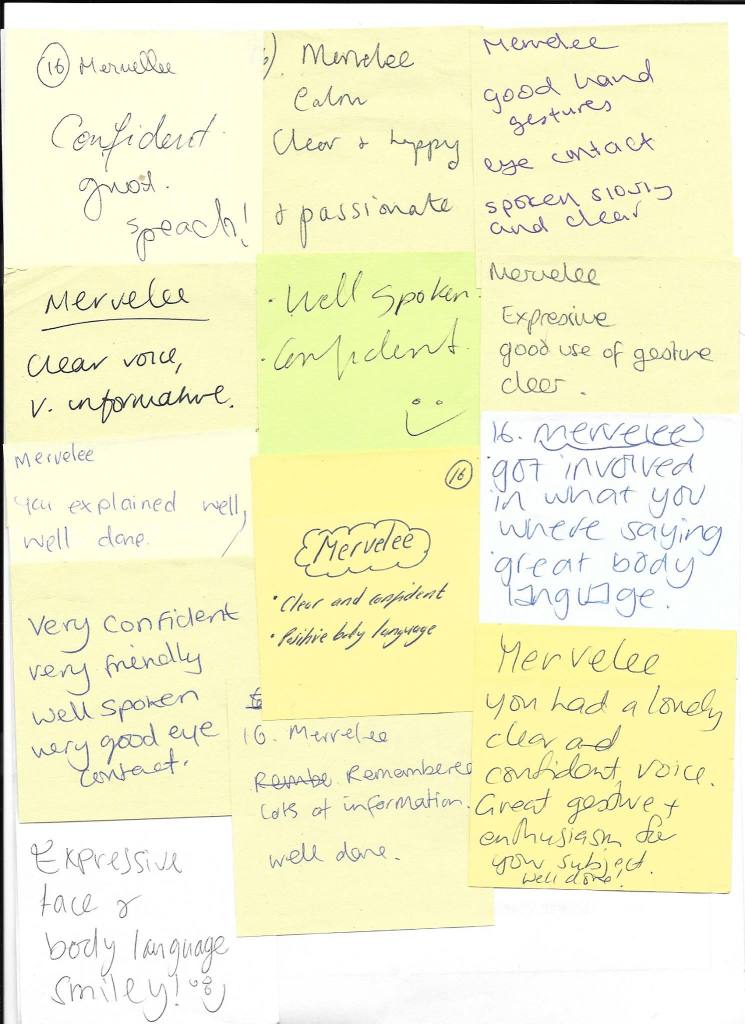 16 Mervellee
Confident
good.
speach!
Mervelee
Calm
Clear + happy
+ passionate
Mervelee
good hand
gestures
eye contact
spoken slowly
and clear
Mervelee
Clear voice,
v. informative.
· Well spoken
· Confident.
Mervelee
Expresive
good use of gesture
cleer.
Mervelee
You explained well,
well done.
16
Mervelee
· Clear and confident
· Positive body language
16. mervelee
got involved
in what you
where saying
great body
language.
Very confident
very friendly
well spoken
very good eye
contact.
16. Mervelee
Remembered
Lots of information.
well done.
Mervelee
you had a lovely
clear and
confident voice.
Great gesture +
enthusiasm for
your subject.
well done!
Expressive
face &
body language
smiley!